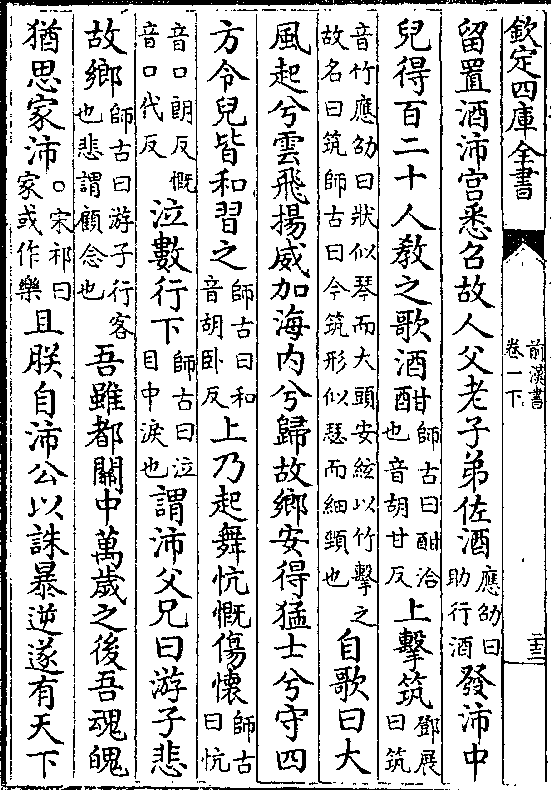 欽定四庫全書
前漢書
卷一下
二十三
留置酒沛宮悉召故人父老子弟佐酒應劭曰助行酒發沛中
兒得百二十人教之歌酒酣師古曰酣洽也音胡甘反上擊筑鄧展曰筑
音竹應劭曰狀似琴而大頭安絃以竹擊之故名曰筑師古曰今筑形似瑟而細頸也自歌曰大
風起兮雲飛揚威加海内兮歸故鄉安得猛士兮守四
方令兒皆和習之師古曰和音胡卧反上乃起舞忼慨傷懷師古曰忼
音口朗反慨音口代反泣數行下師古曰泣目中淚也謂沛父兄曰游子悲
故鄉師古曰游子行客也悲謂顧念也吾雖都關中萬歲之後吾魂魄
猶思家沛○宋祁曰家或作樂且朕自沛公以誅暴逆遂有天下